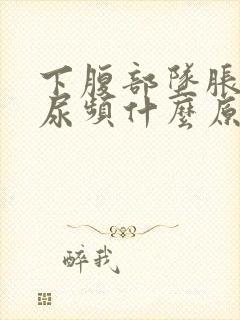 下腹部墜脹
尿頻什麼原
醉我